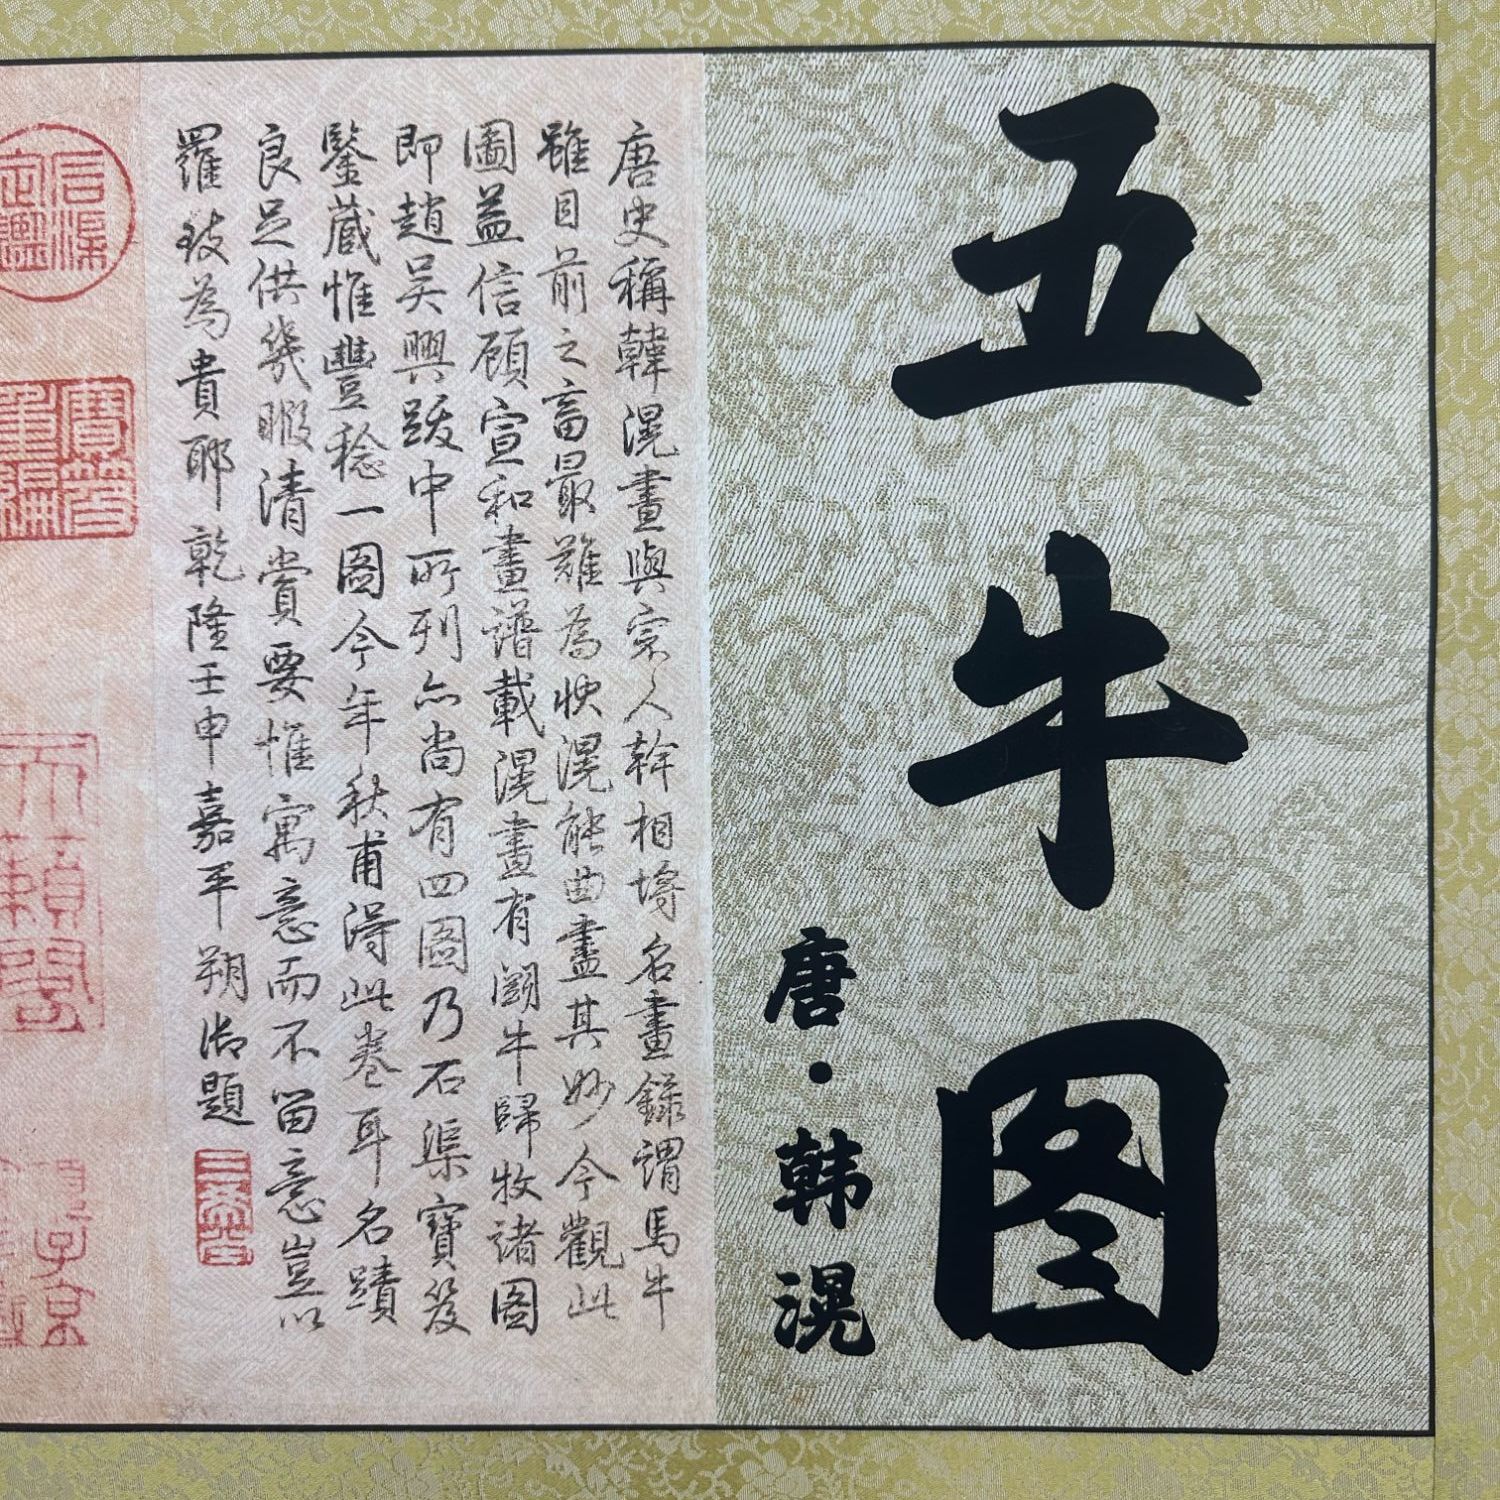 五牛图
唐·韩滉
唐史稱韓滉畫與宗人幹相埒名畫錄謂馬牛
雖目前之畜最難為狀滉能曲盡其妙今觀此
圖益信顧宣和畫譜載滉畫有鬭牛歸牧諸圖
即趙吴興跋中所列亦尚有四圖乃石渠寶笈
鑒藏惟豐稔一圖今年秋甫得此卷耳名蹟
良足供幾暇清賞要惟寓意而不留意豈以
羅致為貴耶乾隆壬申嘉平朔御題
三希堂
石渠定鑑
寶笈重編